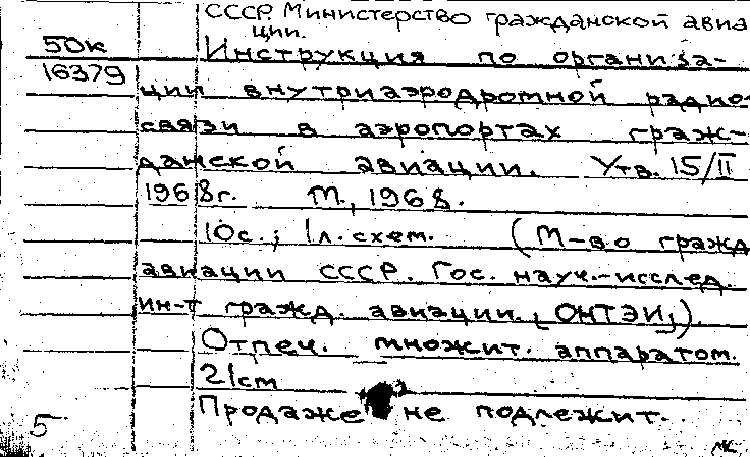 СССР. Министерство гражданской авиа
ции.
50к
Инструкция по организа-
16379
ции внутриаэродромной радио-
связи в аэропортах граж-
данской авиации. Утв. 15/II
1968г. М., 1968.
10с.; 1л. схем. (М-во гражд
авиации СССР. Гос. науч.-исслед.
ин-т гражд. авиации. [ОНТЭИ]).
Отпеч. множит. аппаратом.
21см
Продаже не подлежит.
5